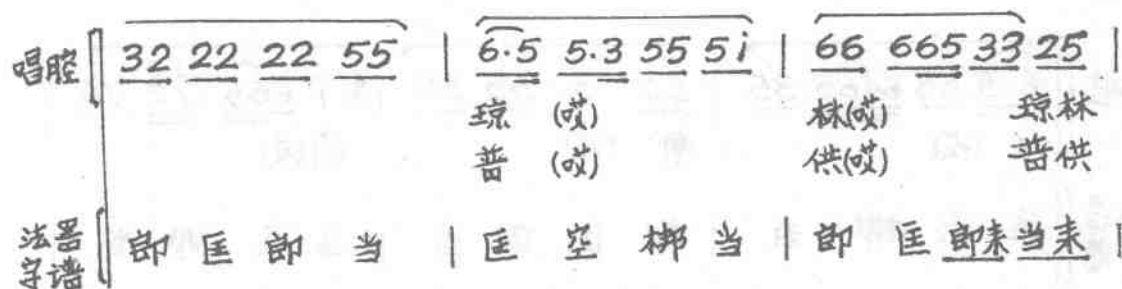 唱腔 32 22 22 55 | 6·5 5·3 55 5i | 66 665 33 25 |
琼 (哎) 林(哎) 琼林
普 (哎) 供(哎) 普供
法器字谱 郎 匡 郎 当 | 匡 空 梆 当 | 郎 匡 郎来 当来 |